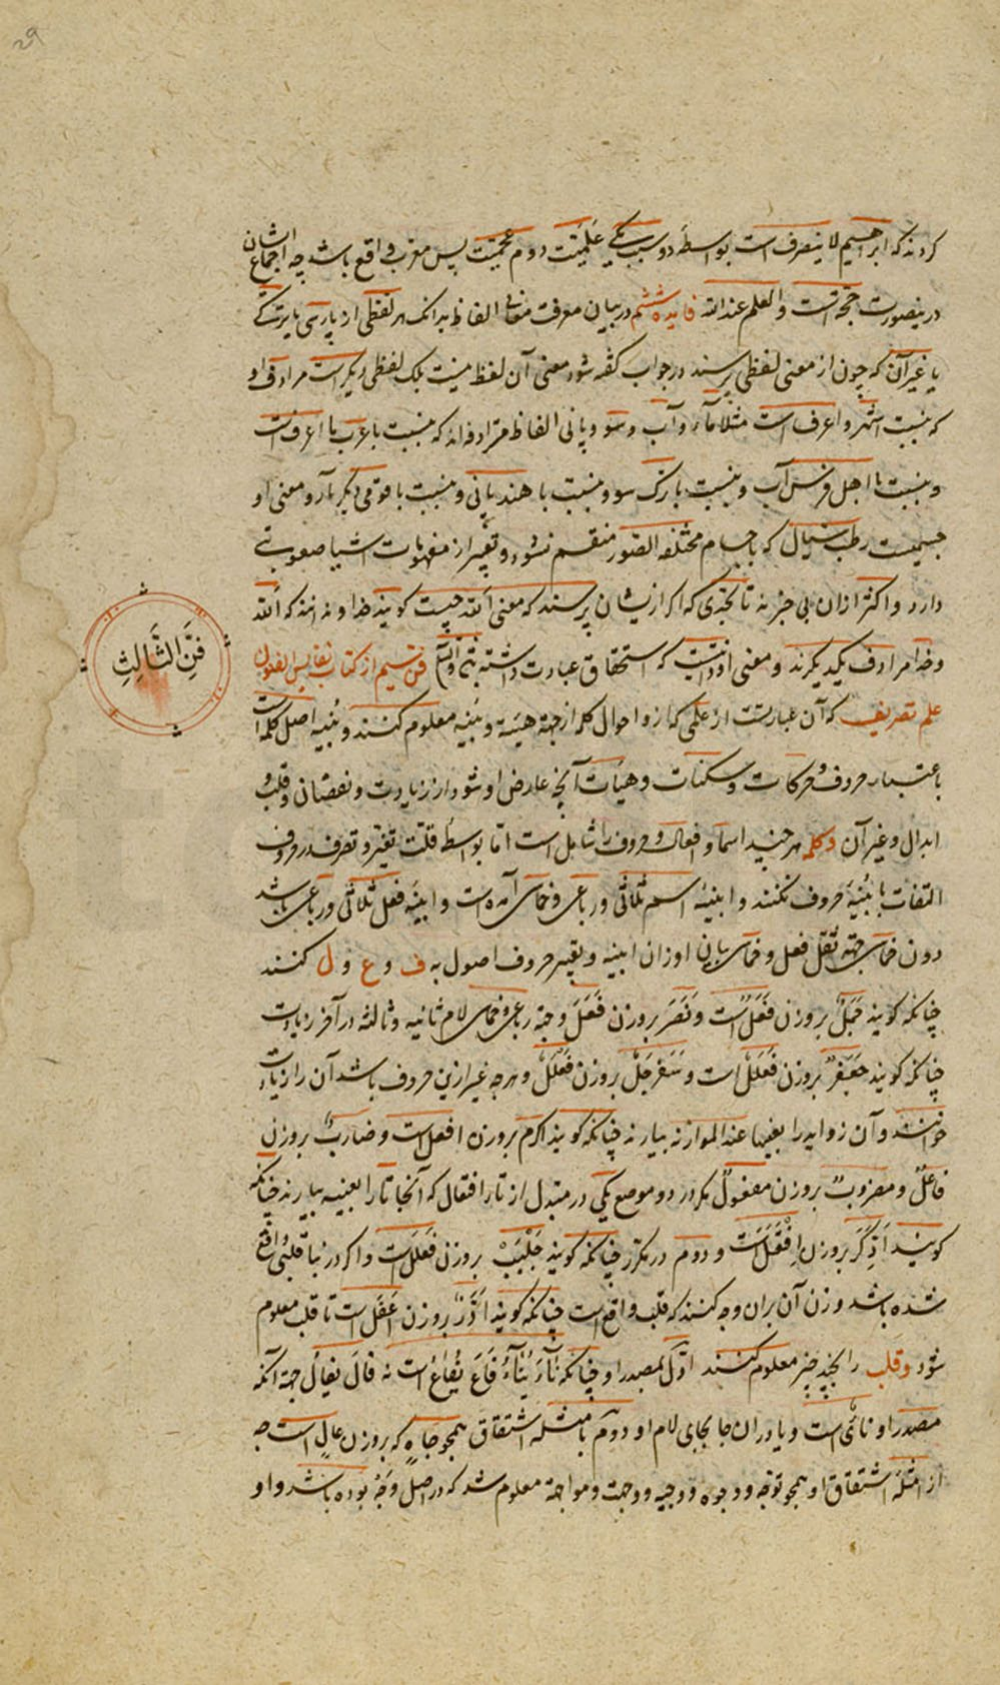 ۲۹
کردند که ابراهیم لا ینصرف است بواسطه دو سبب یکی علمیت دوم عجمیت پس معرب واقع باشد چه اجماع ایشان
درینصورت حجتست والعلم عند الله فایده ششم در بیان معرفت معانی الفاظ بدانک هر لفظی از پارسی یا ترکی
یا غیر آن که چون از معنی لفظی پرسند در جواب گفته شود معنی آن لفظ نیست بلک لفظی دیگر است مرادف او
که بنسبت اشهر و اعرف است مثلا ماء و آب و سو و پانی الفاظ مترادفه‌اند که بنسبت با عرب ما اعرفست
و بنسبت با اهل فرس آب و بنسبت با ترک سو و بنسبت با هند پانی و بنسبت با قومی دیگر مارو معنی او
جسمیست رطب سیال که باجسام مختلفه الصور منقسم شود و تعبیر از مفهومات اشیا صعوبتی
دارد و اکثر ازان بی خبرند تا بحدی که اگر ازیشان پرسند که معنی الله چیست گویند خداوند اند که الله
و خدا مرادف یکدیگرند و معنی او ذاتیست که استحقاق عبادت داشته
فن سیم از کتاب نفایس الفنون
فن الثالث
علم تصریف که آن عبارتست از علمی که ازو احوال کلمه از جهة هیئة و بنیه معلوم کنند و بنیه اصل کلمه است
باعتبار حروف و حرکات و سکنات و هیأت آنچه عارض او شود از زیادت و نقصان و قلب و
ابدال و غیر آن و کلمه هر چند اسما و افعال و حروف را شامل است اما بواسطه قلت تغیر و تصرف در حروف
التفات بابنیه حروف نکنند و ابنیه اسم ثلاثی و رباعی و خماسی آمده است و ابنیه فعل ثلاثی و رباعی باشد
دون خماسی جهة ثقل فعل و خماسی بیان اوزان ابنیه و تعبیر حروف اصول به ف و ع و ل کنند
چنانکه گویند جبل بر وزن فعل است و نصر بر وزن فعل و جهة رباعی و خماسی لام ثانیه و ثالثه در آخر زیادت
چنانکه گویند جعفر بر وزن فعلل است و سفرجل بر وزن فعلل و هرچه غیر ازین حروف باشد آن را زیادت
خوانند و آن زواید را بعینها عند الموازنه بیارند چنانکه گویند اکرم بر وزن افعل است و ضارب بر وزن
فاعل و مضروب بر وزن مفعول مگر در دو موضع یکی در مبدل از تاء افتعال که آنجا تا را بعینه بیارند چنانکه
گویند اذکر بر وزن افتعل است و دوم در مکرر چنانکه گویند جلبب بر وزن فعلل است و اگر در بنا قلبی واقع
شده باشد وزن آن بران وجه کنند که قلب واقع است چنانکه گویند آدر بر وزن اعفل است تا قلب معلوم
شود و قلب را بچند چیز معلوم کنند اول بمصدر او چنانکه ناء یناء فلع یفلع است نه فال یفال جهة آنکه
مصدر او نائی است و یا در ان جا بجای لام او دوم بامثله اشتقاق همچو جاه که بر وزن عال است چه
از امثله اشتقاق او همچو توجه و وجوه و وجیه و وجهت و مواجهة معلوم شد که در اصل وجه بوده باشد و او